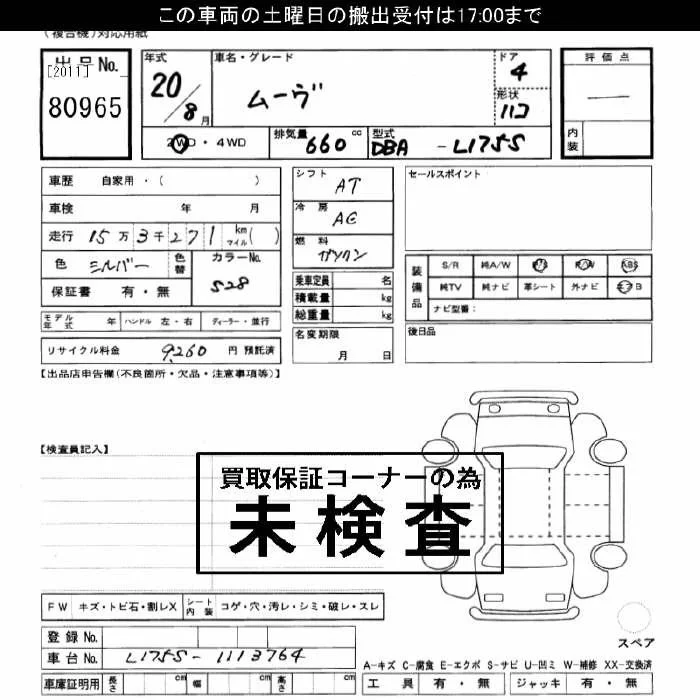 この車両の土曜日の搬出受付は17:00まで
(複合機)対応用紙
出品No. [2011] 80965
年式 20/8月
車名・グレード ムーヴ
ドア 4
形状 ハコ
評価点 —
内装
2WD・4WD 排気量 660 cc 型式 DBA - L175S
車歴 自家用・( )
車検 年 月
走行 15万3千271 km マイル( )
色 シルバー 色替 カラーNo. S28
保証書 有・無
シフト AT
冷房 AC
燃料 ガソリン
乗車定員 名
積載量 kg
総重量 kg
セールスポイント
装備品
S/R 純A/W P/S P/W ABS
純TV 純ナビ 革シート 外ナビ エアB
ナビ型番:
モデル年式 年 ハンドル 左・右 ディーラー・並行
名変期限 月 日
後日品
リサイクル料金 9,260 円 預託済
【出品店申告欄(不良箇所・欠品・注意事項等)】
【検査員記入】
買取保証コーナーの為
未検査
FW キズ・トビ石・割レX シート内装 コゲ・穴・汚レ・シミ・破レ・スレ
登録No.
車台No. L175S-1113764
スペア
A-キズ C-腐食 E-エクボ S-サビ U-凹ミ W-補修 XX-交換済
車庫証明用 長さ cm 幅 cm 高さ cm
工具 有・無 ジャッキ 有・無